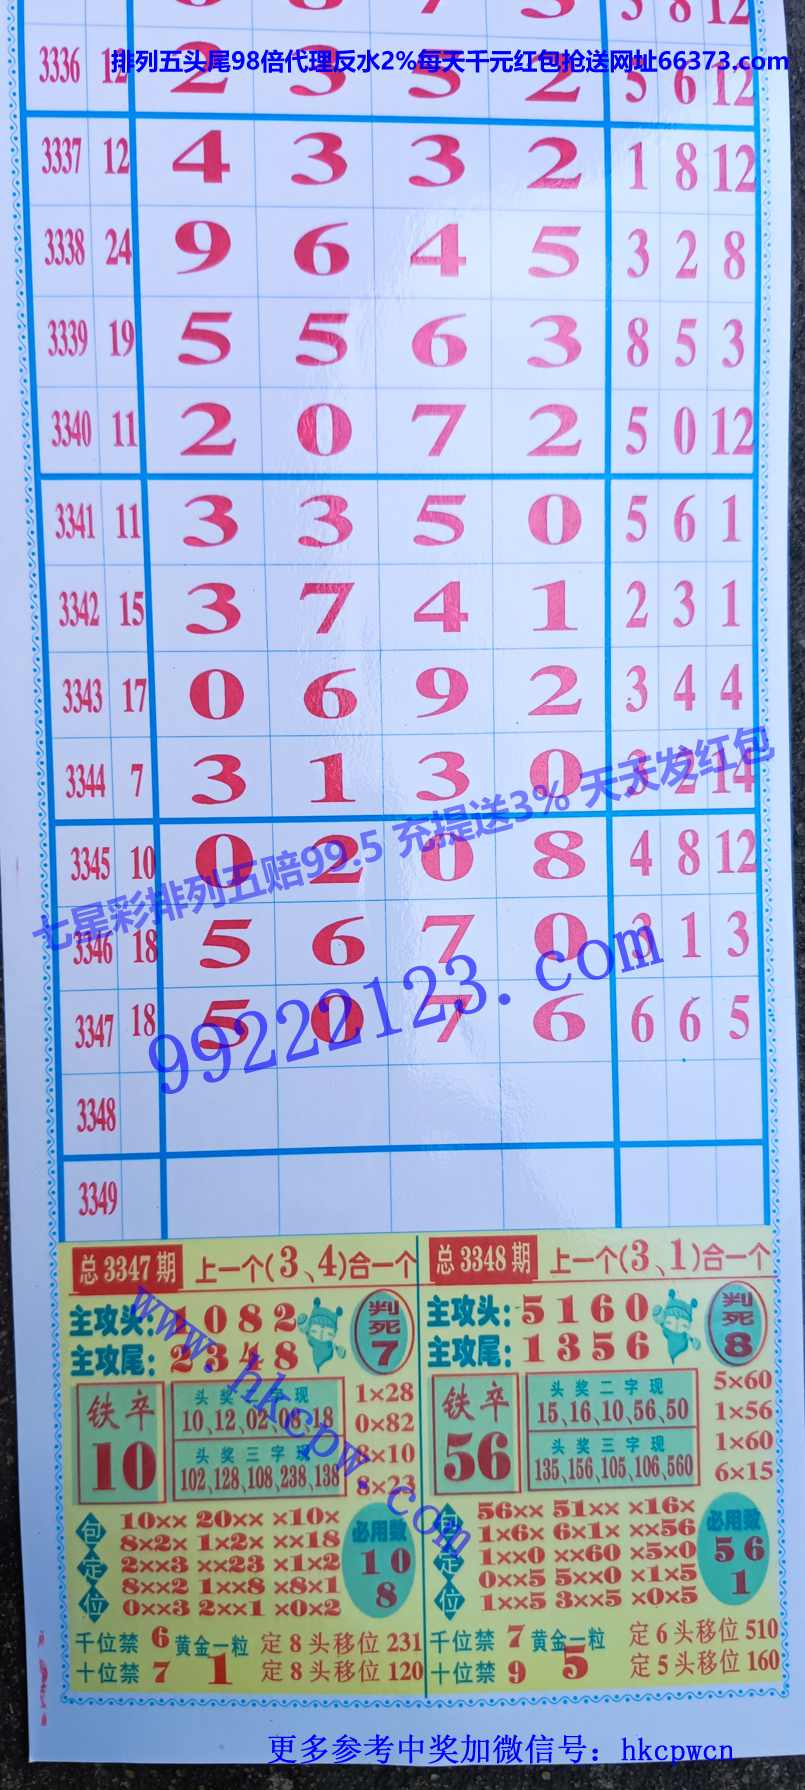 5 8 12
3336 12 2 3 5 2 5 6 12
排列五头尾98倍代理反水2%每天千元红包抢送网址66373.com
3337 12 4 3 3 2 1 8 12
3338 24 9 6 4 5 3 2 8
3339 19 5 5 6 3 8 5 3
3340 11 2 0 7 2 5 0 12
3341 11 3 3 5 0 5 6 1
3342 15 3 7 4 1 2 3 1
3343 17 0 6 9 2 3 4 4
3344 7 3 1 3 0 3 2 14
七星彩排列五赔99.5 充提送3% 天天发红包
3345 10 0 2 0 8 4 8 12
3346 18 5 6 7 0 3 1 3
99222123.com
3347 18 5 0 7 6 6 6 5
3348
3349
总3347期 上一个(3、4)合一个
主攻头:1082
主攻尾:2348
判死7
铁卒
10
头奖二字现
10,12,02,08,18
头奖三字现
102,128,108,238,138
1×28
0×82
8×10
8×23
包定位
10×× 20×× ×10×
8×2× 1×2× ××18
2××3 ××23 ×1×2
8××2 1××8 ×8×1
0××3 2××1 ×0×2
必用数
1 0
8
千位禁 6
十位禁 7
黄金一粒
1
定8头移位231
定8头移位120
总3348期 上一个(3、1)合一个
主攻头:5160
主攻尾:1356
判死8
铁卒
56
头奖二字现
15,16,10,56,50
头奖三字现
135,156,105,106,560
5×60
1×56
1×60
6×15
包定位
56×× 51×× ×16×
1×6× 6×1× ××56
1××0 ××60 ×5×0
0××5 5××0 ×1×5
1××5 3××5 ×0×5
必用数
5 6
1
千位禁 7
十位禁 9
黄金一粒
5
定6头移位510
定5头移位160
www.hkcpw.com
更多参考中奖加微信号：hkcpwcn